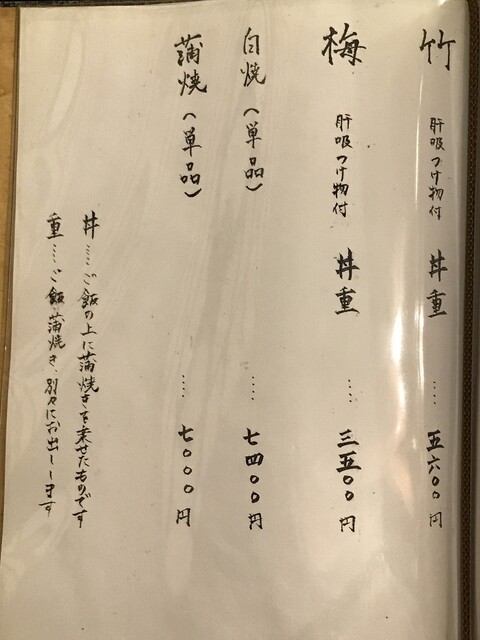 竹 肝吸つけ物付 丼重 ‥‥ 五六〇〇円
梅 肝吸つけ物付 丼重 ‥‥ 三五〇〇円
白焼(単品) ‥‥ 七四〇〇円
蒲焼(単品) ‥‥ 七〇〇〇円
丼‥‥ご飯の上に蒲焼きを乗せたものです
重‥‥ご飯、蒲焼き、別々にお出しします